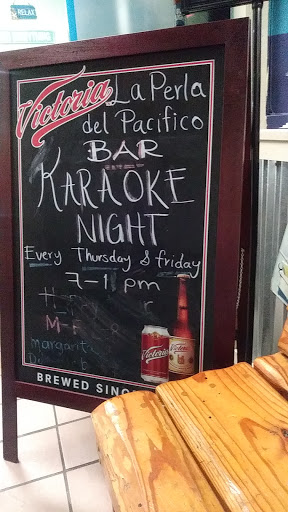 RELAX
Victoria La Perla
del Pacifico
BAR
KARAOKE
NIGHT
Every Thursday & friday
7-1 pm
M-F
margarita
Victoria
Victoria
BREWED SINC